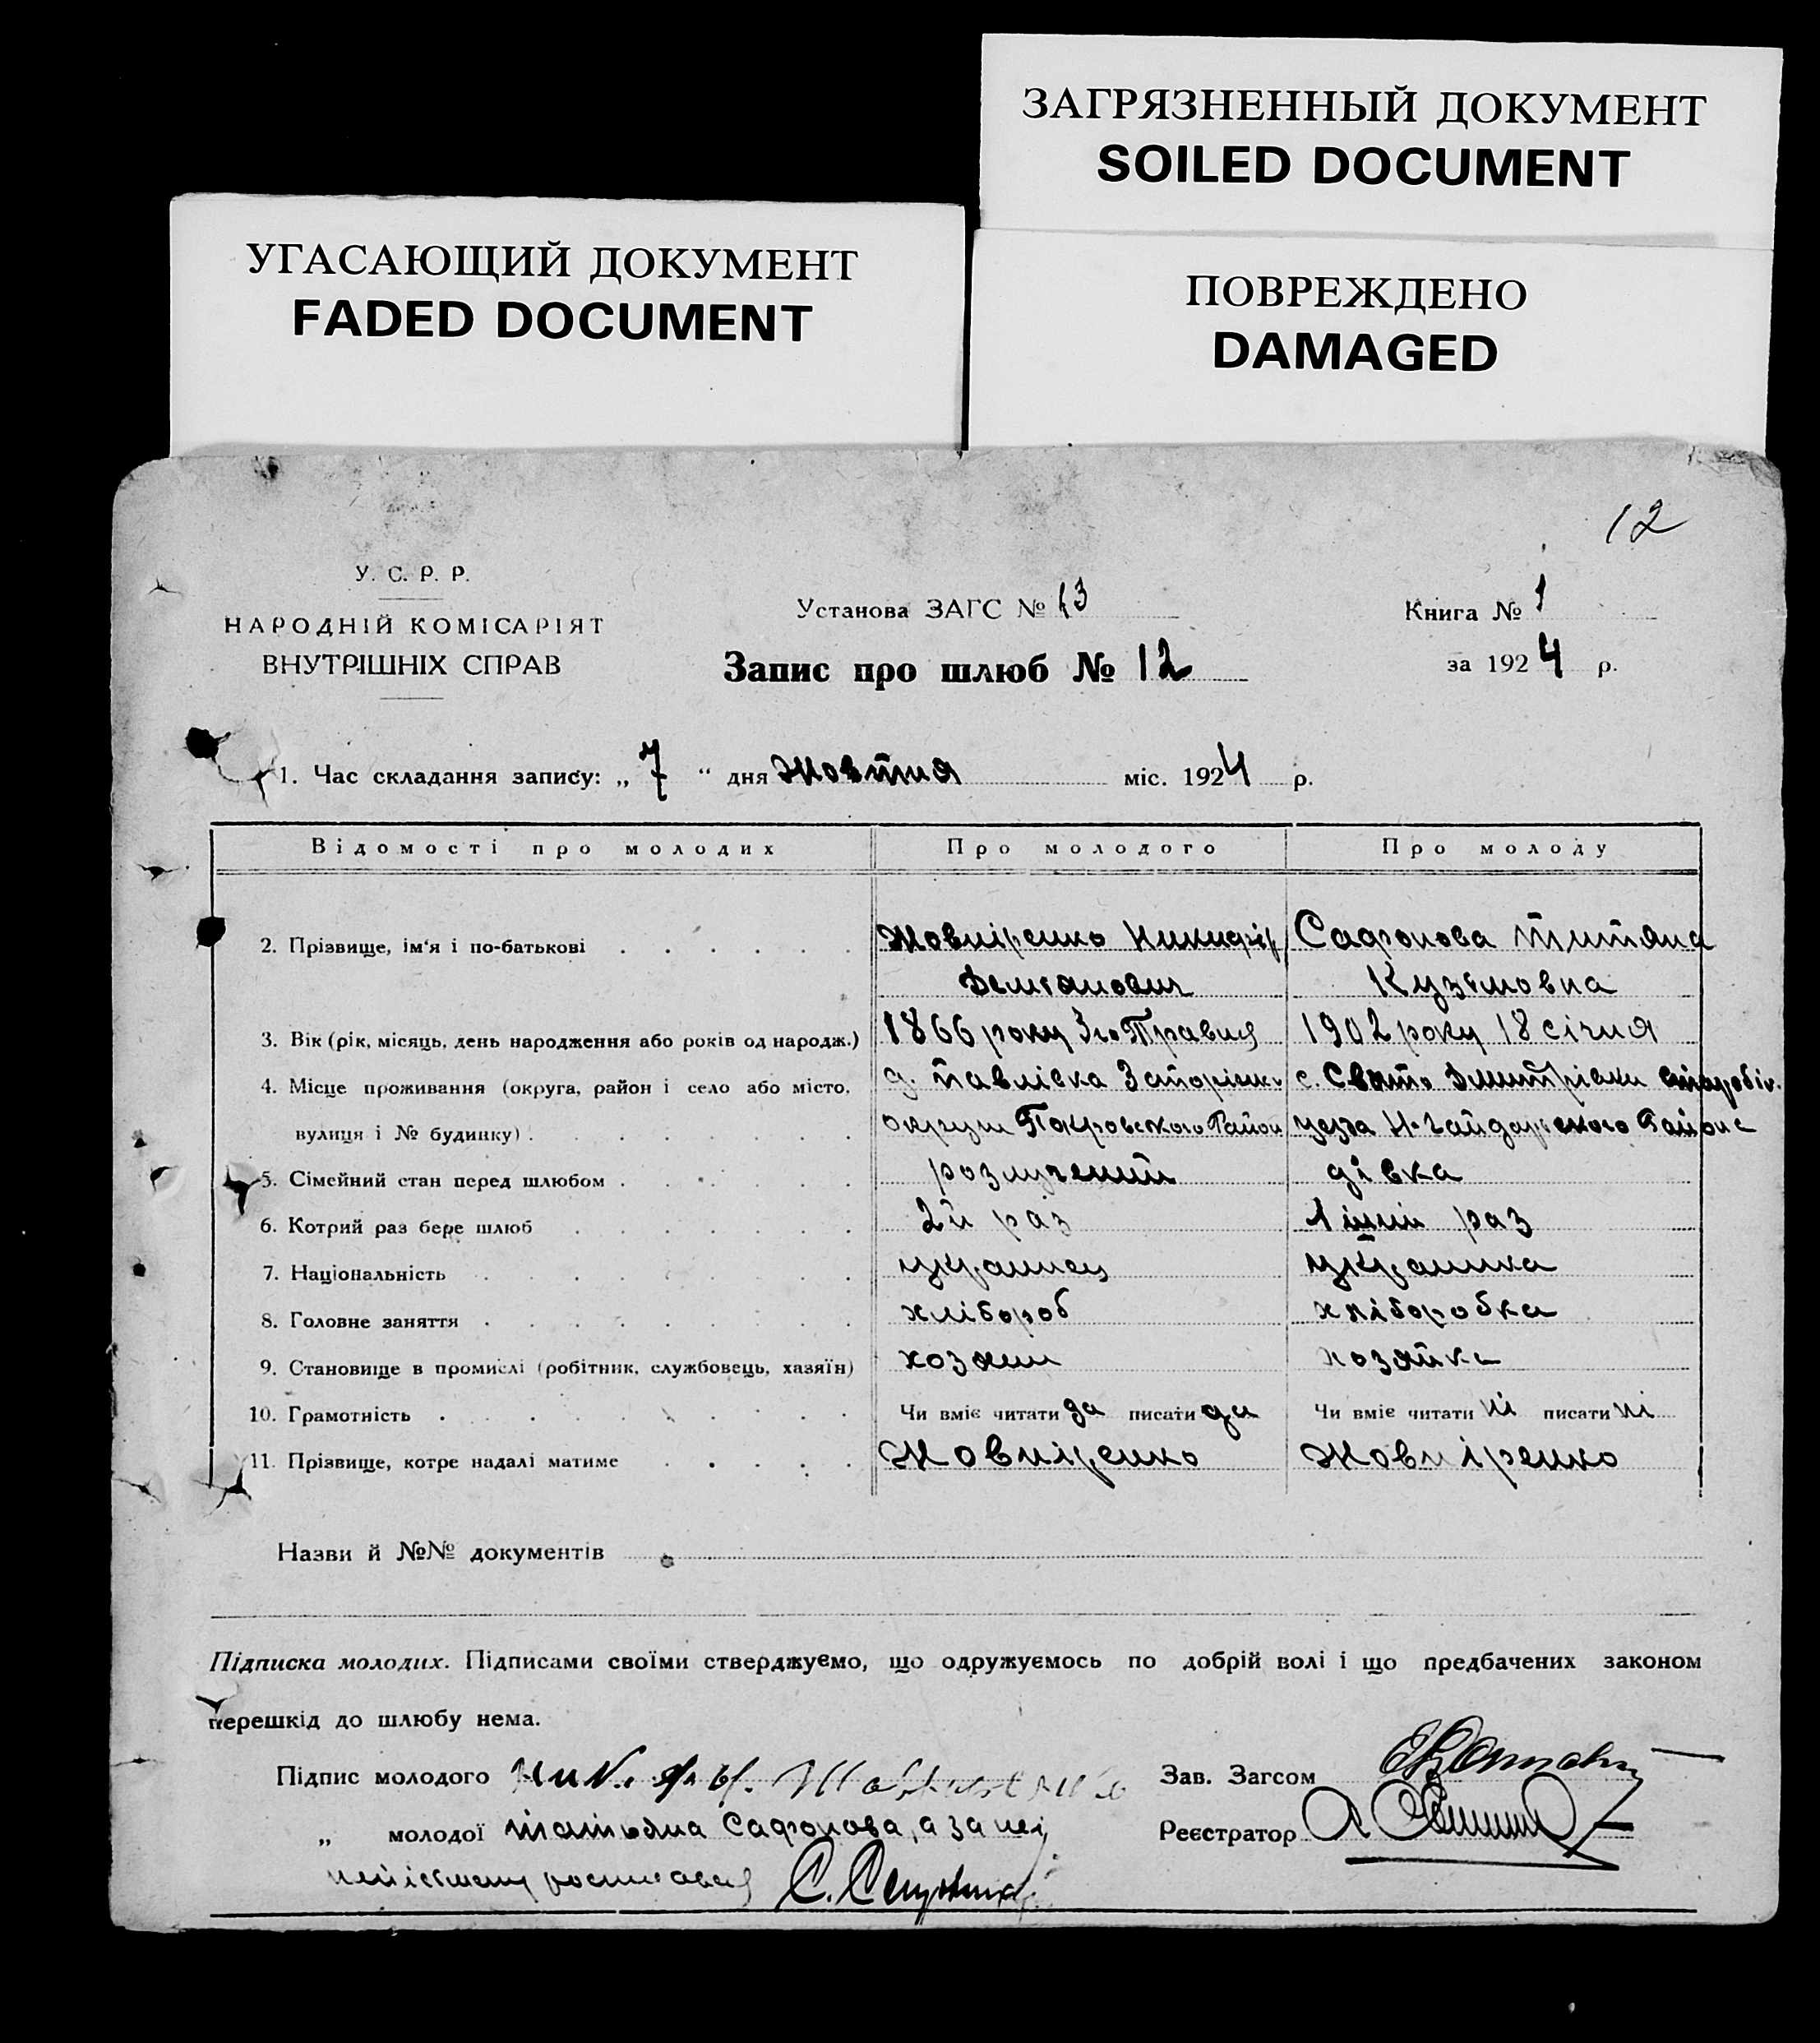 ЗАГРЯЗНЕННЫЙ ДОКУМЕНТ
SOILED DOCUMENT
УГАСАЮЩИЙ ДОКУМЕНТ
FADED DOCUMENT
ПОВРЕЖДЕНО
DAMAGED
12
У. С. Р. Р.
НАРОДНІЙ КОМІСАРІЯТ
ВНУТРІШНІХ СПРАВ
Установа ЗАГС № 13
Книга № 1
Запис про шлюб № 12
за 1924 р.
1. Час складання запису: „ 7 “ дня Жовтня міс. 1924 р.
Відомості про молодих Про молодого Про молоду
2. Прізвище, ім'я і по-батькові Жовніренко Никифір Сафонова Титяна
Демянович Кузьмовна
3. Вік (рік, місяць, день народження або років од народж.) 1866 року 3го Травня 1902 року 18 січня
4. Місце проживання (округа, район і село або місто, д. Павлівка Запоріськ. с. Свято Дмитрівки старобіл.
вулиця і № будинку). округи Покровського Район уезда Н-Гайдарського Району
5. Сімейний стан перед шлюбом розлучений дівка
6. Котрий раз бере шлюб 2й раз 1 раз
7. Національність украинец украинка
8. Головне заняття хлібороб хліборобка
9. Становище в промислі (робітник, службовець, хазяїн) хозяин хозяйка
10. Грамотність Чи вміє читати да писати да Чи вміє читати ні писати ні
11. Прізвище, котре надалі матиме Жовніренко Жовніренко
Назви й №№ документів
Підписка молодих. Підписами своїми стверджуємо, що одружуємось по добрій волі і що предбачених законом
перешкід до шлюбу нема.
Підпис молодого Зав. Загсом
„ молодої Татьяна Сафонова, а за неї Реєстратор